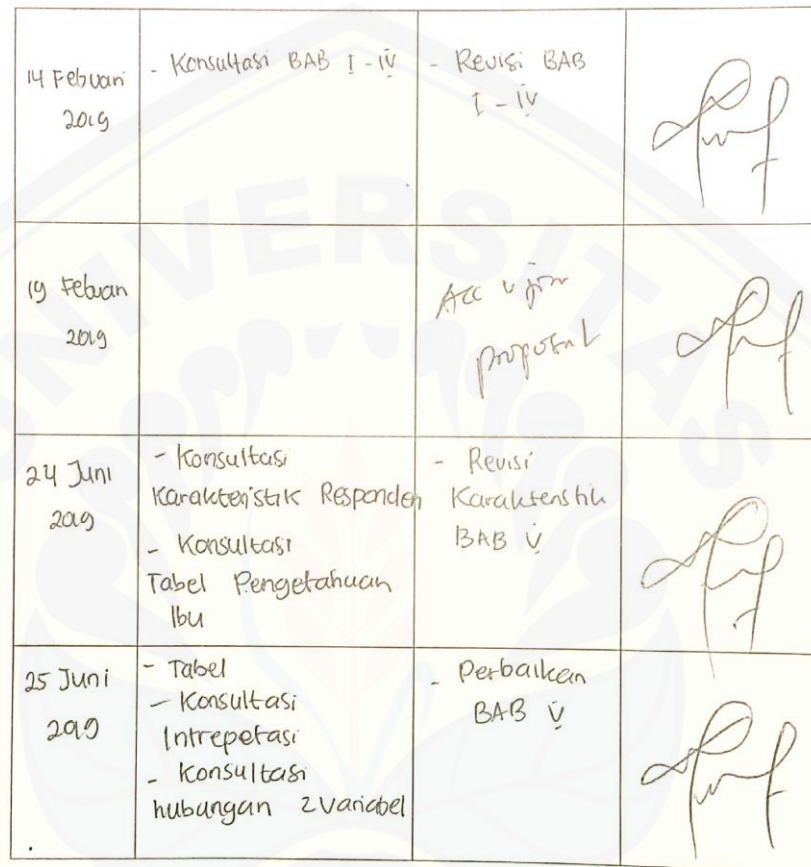 14 Febuari
2019
- Konsultasi BAB I - IV
- Revisi BAB
I - IV
19 Febuari
2019
Acc ujian
proposal
24 Juni
2019
- Konsultasi
Karakteristik Responden
- Konsultasi
Tabel Pengetahuan
Ibu
- Revisi
Karakteristik
BAB V
25 Juni
2019
- Tabel
- Konsultasi
Intrepetasi
- Konsultasi
hubungan 2 Variabel
- Perbaikan
BAB V
UNIVERSITAS